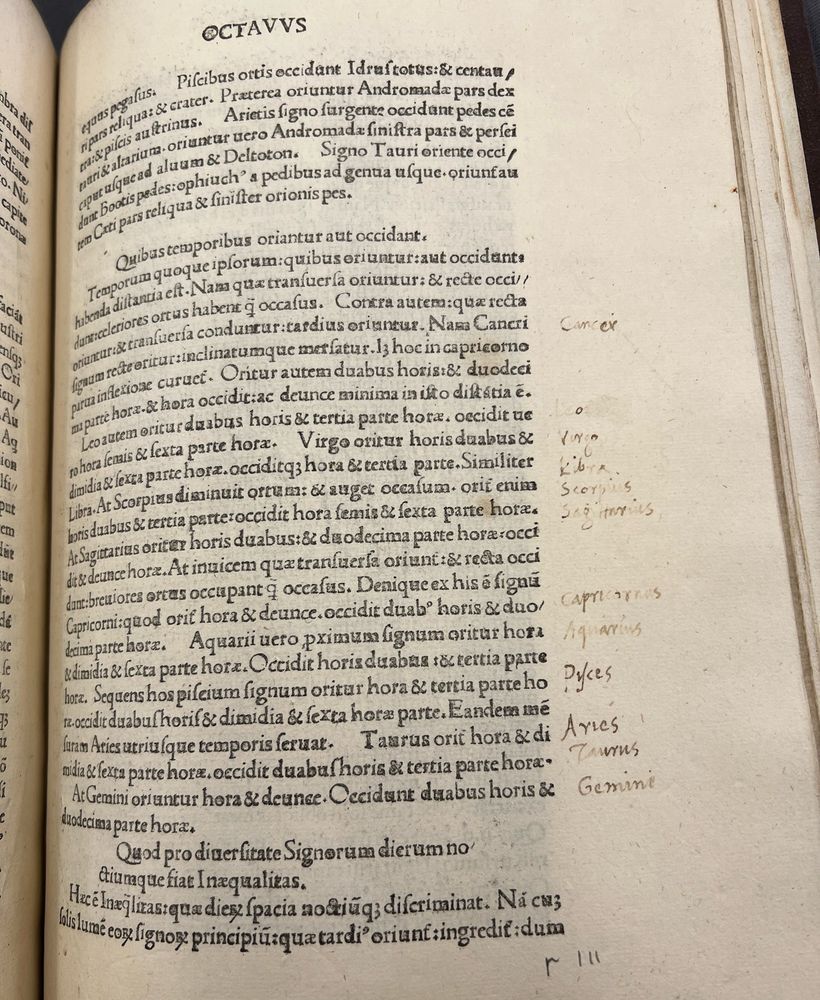 OCTAVVS
equus pegasus. Piscibus ortis occidunt Idrus totus: & centau/
ri pars reliqua: & crater. Præterea oriuntur Andromadæ pars dex
tra: & piscis austrinus. Arietis signo surgente occidunt pedes cē
tauri & altarium. oriuntur uero Andromadæ sinistra pars & persei
caput usque ad aluum & Deltoton. Signo Tauri oriente occi/
dunt Bootis pedes: ophiuchꝰ a pedibus ad genua usque. oriunt᷑ au
tem Cæti pars reliqua & sinister orionis pes.
Quibus temporibus oriantur aut occidant.
Temporum quoque ipsorum: quibus oriuntur: aut occidunt:
habenda distantia est. Nam quæ transuersa oriuntur: & recte occi/
dunt: celeriores ortus habent q̄ occasus. Contra autem: quæ recta
oriuntur: & transuersa conduntur: tardius oriuntur. Nam Cancri
signum recte oritur: inclinatumque mersatur. Iꝫ hoc in capricorno
parua inflexione curuet᷑. Oritur autem duabus horis: & duodeci
ma parte horæ. & hora occidit: ac deunce minima in isto distātia ē.
Leo autem oritur duabus horis & tertia parte horæ. occidit ue
ro hora semis & sexta parte horæ. Virgo oritur horis duabus &
dimidia & sexta parte horæ. occiditqꝫ hora & tertia parte. Similiter
Libra. At Scorpius diminuit ortum: & auget occasum. orit᷑ enim
horis duabus & tertia parte: occidit hora semis & sexta parte horæ.
At Sagittarius oritur horis duabus: & duodecima parte horæ: occi
dit & deunce horæ. At inuicem quæ transuersa oriunt᷑: & recta occi
dunt: breuiores ortus occupant q̄ occasus. Denique ex his ē signū
Capricorni: quod orit᷑ hora & deunce. occidit duabꝰ horis & duo/
decima parte horæ. Aquarii uero ꝓximum signum oritur hora
& dimidia & sexta parte horæ. Occidit horis duabus: & tertia parte
horæ. Sequens hos piscium signum oritur hora & tertia parte ho
ræ. occidit duabus horis & dimidia & sexta horæ parte. Eandem mē
suram Aries utriusque temporis seruat. Taurus orit᷑ hora & di
midia & sexta parte horæ. occidit duabus horis & tertia parte horæ.
At Gemini oriuntur hora & deunce. Occidunt duabus horis &
duodecima parte horæ.
Quod pro diuersitate Signorum dierum no/
ctiumque fiat Inæqualitas.
Hæc ē Inæq̄litas: quæ dieꝝ spacia noctiūqꝫ discriminat. Nā cuꝫ
solis lumē eoꝝ signoꝝ principiū: quæ tardiꝰ oriunt᷑: ingredit᷑: dum
Cancer
Virgo
Libra.
Scorpius
Sagittarius
Capricornus
Aquarius
Pisces
Aries
Taurus
Gemine
r III